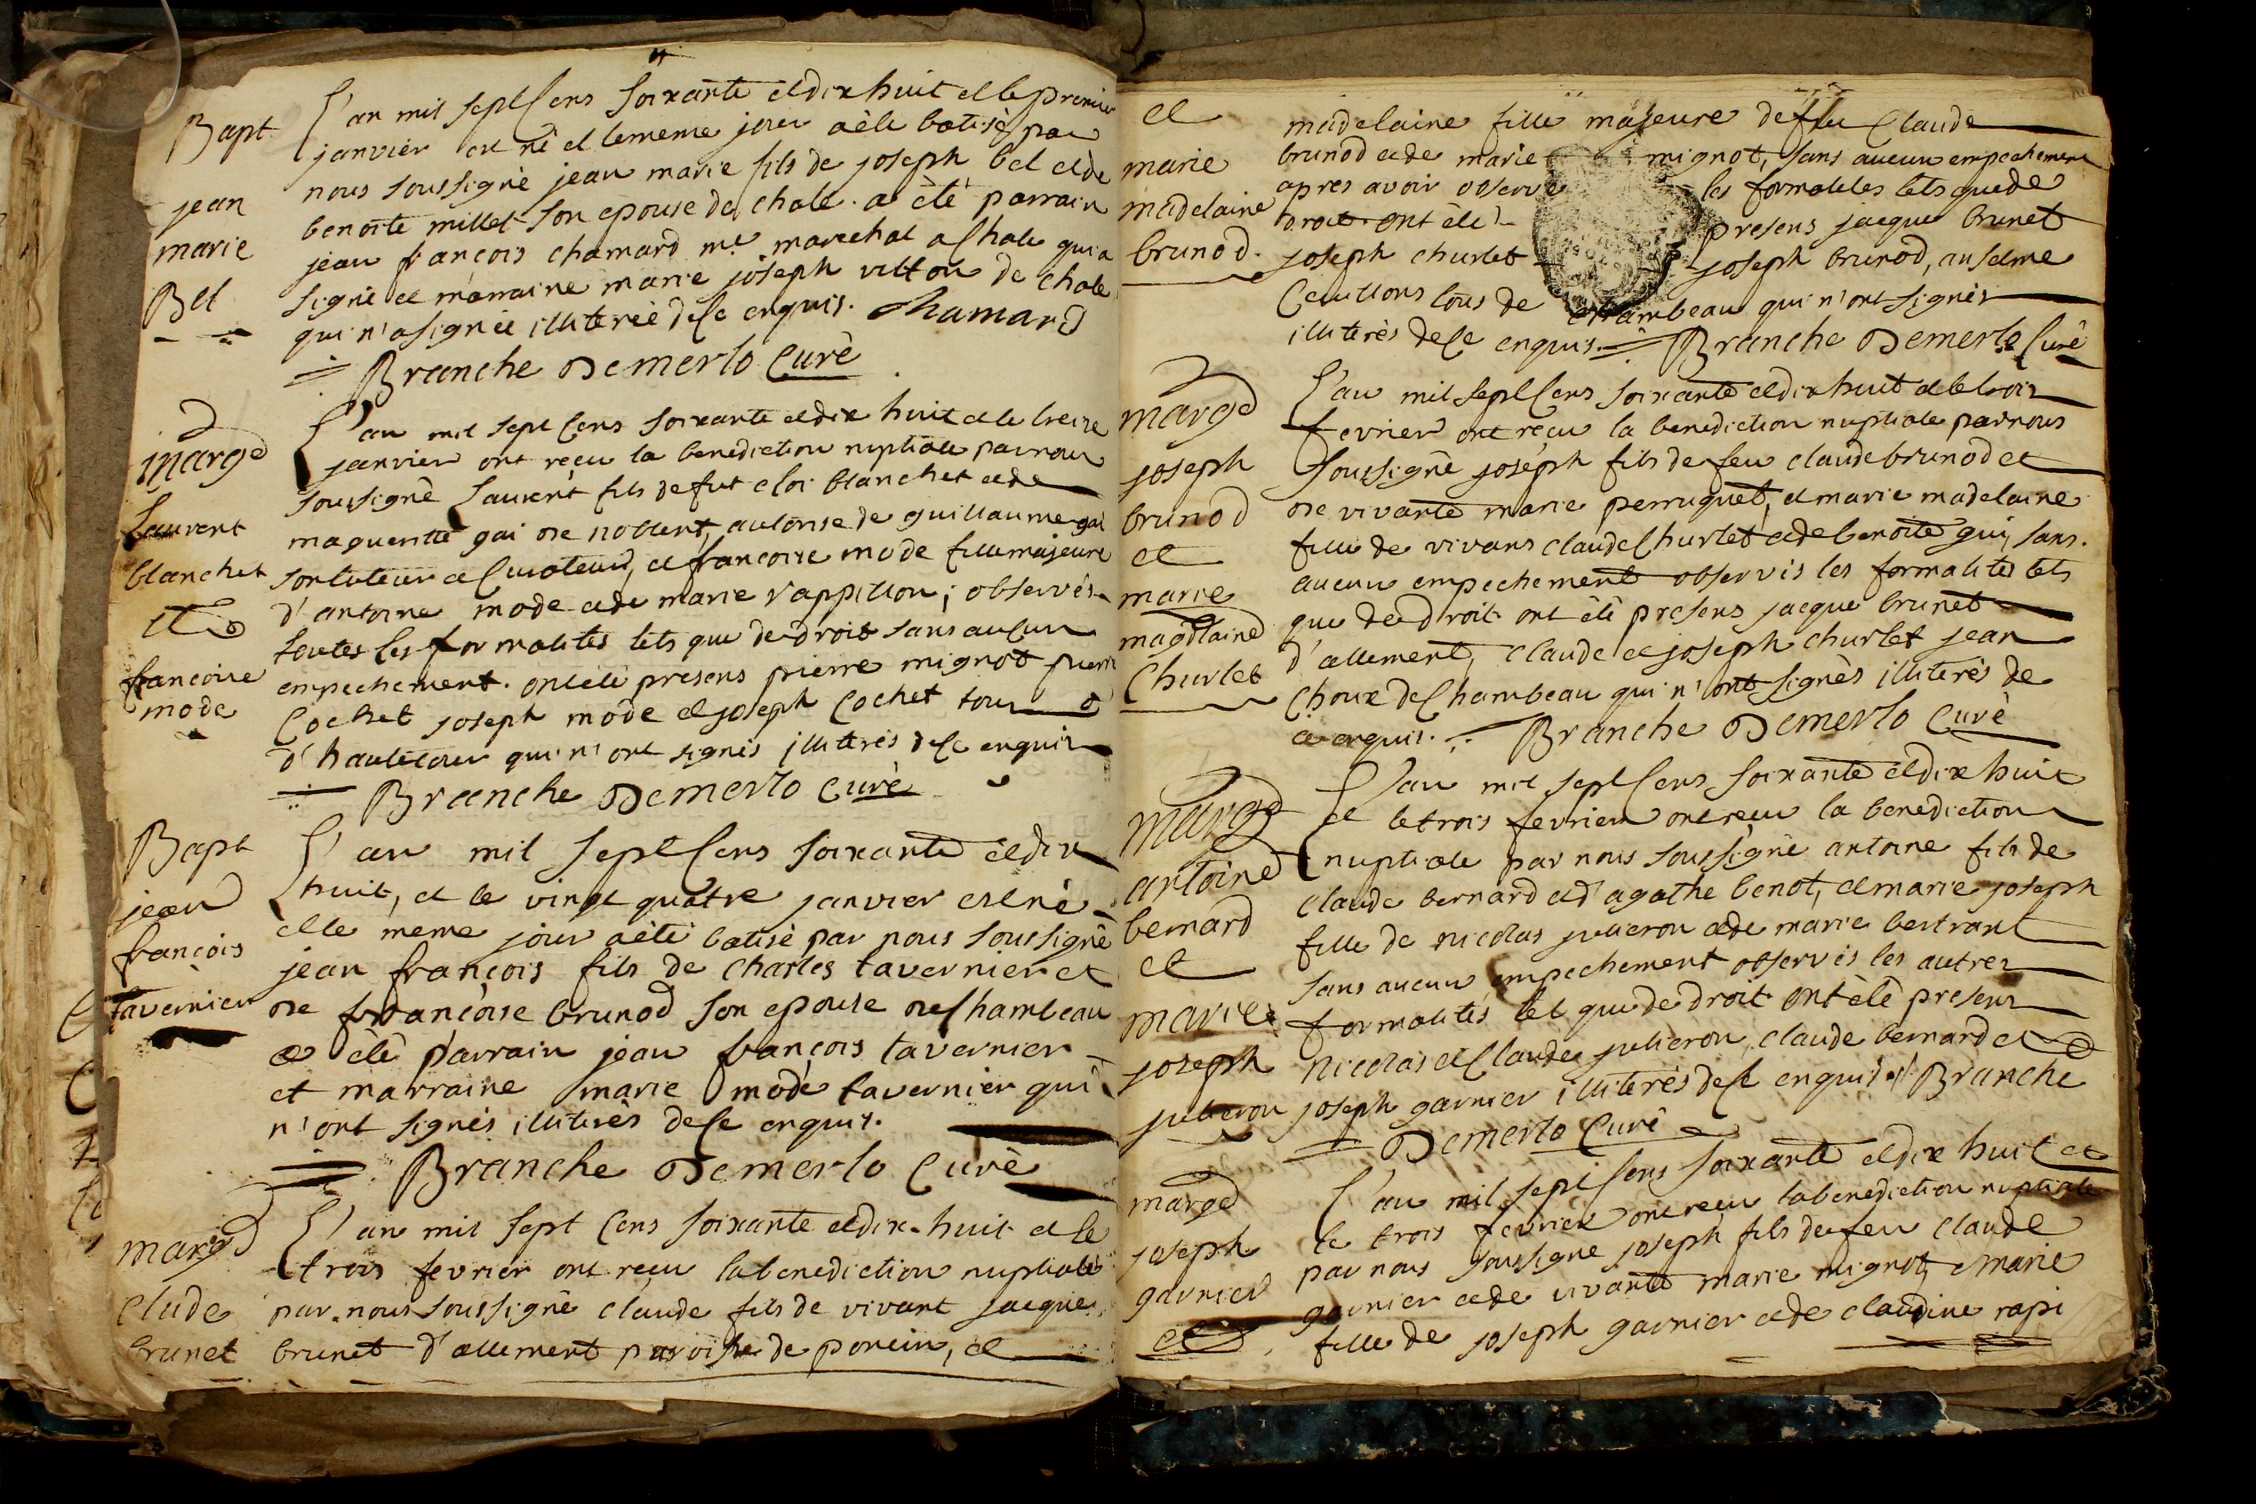 Bapt
jean
marie
Bel
L'an mil sept Cens soixante et dix huit et le premier
janvier est né et le meme jour a èté batisé par
nous soussigné jean marie fils de joseph bel et de
benoite millet son epouse de chale. a èté parrain
jean françois chamard me marechal a Chale qui a
signé et marraine marie joseph vitton de chale
qui n'a signée illiterèe de Ce enquis. Chamard
Branche Demerlo Curè
marge
Laurent
blanchet
et
francoise
mode
L'an mil sept Cens soixante et dix huit et le treize
janvier ont reçu la benediction nuptiale par nous
soussigné Laurent fils de fut cloi blanchet et de
magueritte gai de nollent, autorisé de guillaume gai
son tuteur et Curateur, et francoise mode fille majeure
d'antoine mode et de marie rappillon; observés
toutes les formalités tels que de droit sans aucun
empechement. ont èté presens pierre mignot pierre
Cochet joseph mode et joseph Cochet tous
d'hautecour qui n'ont signés illiterés de Ce enquis
Branche Demerlo Curè
Bapt
jean
françois
tavernier
L'an mil sept Cens soixante et dix
huit, et le vingt quatre janvier est né
et le mème jour a èté batisé par nous soussigné
jean françois fils de Charles tavernier et
de francoise brunod son epouse de Chambeau
a èté parrain jean françois tavernier
et marraine marie mode tavernier qui
n'ont signés illiterès de Ce enquis.
Branche Demerlo Curè
marge
clude
brunet
L'an mil sept Cens soixante et dix-huit et le
trois fevrier ont reçu la benediction nuptiale
par nous soussigné claude fils de vivant jacque
brunet d'allement paroisse de poncin, et
et
marie
madelaine
brunod.
madelaine fille majeure de feu Claude
brunod et de marie mignot, sans aucun empechement
apres avoir observé les formalites tels que de
droit ont èté presens jacque brunet
joseph churlet joseph brunod, anselme
tous de Chambeau qui n'ont signés
illiterés de Ce enquis. Branche Demerlo Curè
marge
joseph
brunod
et
marie
magdlaine
Churlet
L'an mil sept Cens soixante et dix huit et le trois
fevrier ont reçu la benediction nuptiale par nous
soussigné joseph fils de feu claude brunod et
de vivante marie perruquet, et marie madelaine
fille de vivans claude Churlet et de benoite gui, sans
aucun empechement observés les formalités tels
que de droit ont èté presens jacque brunet
d'allement, claude et joseph churlet jean
Choux de Chambeau qui n'ont signès illiterés de
ce enquis. Branche Demerlo Curè
marge
antoine
bernard
et
marie
joseph
julieron
L'an mil sept Cens soixante et dix huit
et le trois fevrier ont reçu la benediction
nuptiale par nous soussigné antoine fils de
claude bernard et d'agathe benot, et marie joseph
fille de nicolas julieron et de marie bertrant
sans aucun empechement observés les autres
formalités tel que de droit ont èté presens
nicolas et Claude julieron, claude bernard et
joseph garnier illiterés de Ce enquis. Branche
Demerlo Curè
marge
joseph
garnier
et
L'an mil sept Cens soixante et dix huit et
le trois fevrier ont reçu la benediction nuptiale
par nous soussigné joseph fils de feu claude
garnier et de vivante marie mignot, et marie
fille de joseph garnier et de claudine rapi